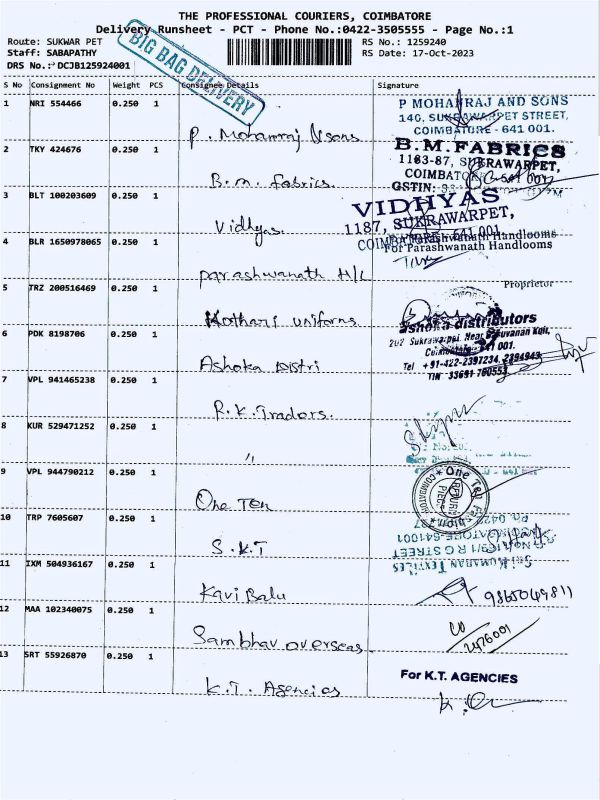 THE PROFESSIONAL COURIERS, COIMBATORE
Delivery Runsheet - PCT - Phone No.:0422-3505555 - Page No.:1
Route: SUKWAR PET
Staff: SABAPATHY
DRS No.: DCJB125924001
BIG BAG DELIVERY
RS No.: 1259240
RS Date: 17-Oct-2023
S No Consignment No Weight PCS Consignee Details Signature
1 NRI 554466 0.250 1
P. Mohanraj & sons
P MOHANRAJ AND SONS
140, SUKRAWARPET STREET,
COIMBATORE - 641 001.
2 TKY 424676 0.250 1
B.M. fabrics.
B.M.FABRICS
1183-87, SUKRAWARPET,
COIMBATORE - 641 001
GSTIN:
3 BLT 100203609 0.250 1
Vidhyas.
VIDHYAS
1187, SUKRAWARPET,
COIMBATORE - 641 001
4 BLR 1650978065 0.250 1
parashwanath H/L
Parashwanath Handlooms
For Parashwanath Handlooms
Proprietor
5 TRZ 200516469 0.250 1
Kothari uniforms
6 PDK 8198706 0.250 1
Ashoka Distri
ashoka distributors
202 Sukrawarpet, Near
Coimbatore - 641 001.
Tel +91-422-2397234, 2394949
TIN 33691 760553
7 VPL 941465238 0.250 1
R.K. Tradors.
8 KUR 529471252 0.250 1
"
9 VPL 944790212 0.250 1
One Ten
One Ten Fashion
COIMBATORE
10 TRP 7605607 0.250 1
S.K.T
Sri Kumaran Textiles
R G STREET
COIMBATORE-641001
Ph. 0422
11 IXM 504936167 0.250 1
Kavi Balu
12 MAA 102340075 0.250 1
Sambhav overseas
13 SRT 55926870 0.250 1
K.T. Agencies
For K.T. AGENCIES